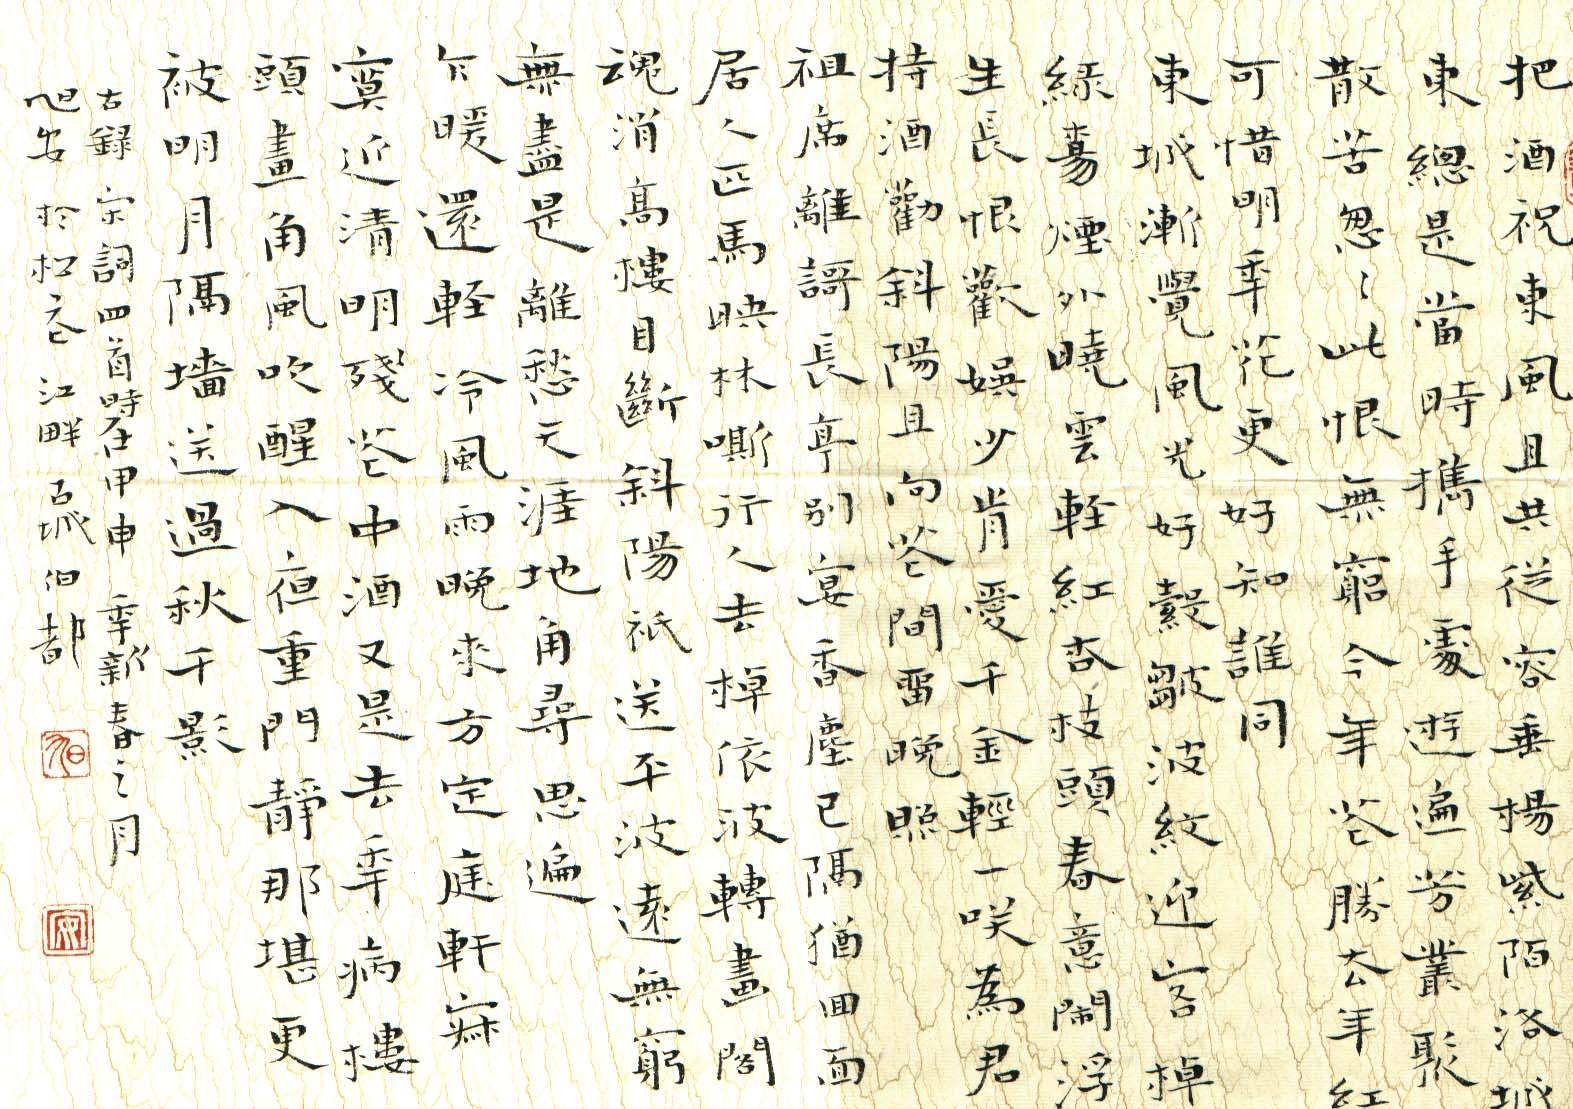 把酒祝東風且共從容垂楊紫陌洛城
東總是當時攜手處遊遍芳叢聚
散苦忽〻此恨無窮今年花勝去年紅
可惜明年花更好知誰同
東城漸覺風光好縠皺波紋迎客棹
綠楊煙外曉雲輕紅杏枝頭春意鬧浮
生長恨歡娛少肯愛千金輕一咲為君
持酒勸斜陽且向花間留晚照
祖席離謌長亭別宴香塵已隔猶回面
居人匹馬映林嘶行人去棹依波轉畫閣
魂消高樓目斷斜陽祇送平波遠無窮
無盡是離愁天涯地角尋思遍
乍暖還輕冷風雨晚來方定庭軒寂
寞近清明殘花中酒又是去年病樓
頭畫角風吹醒入夜重門靜那堪更
被明月隔墻送過秋千影
右錄宋詞四首時在甲申年新春之月
旭安於松花江畔石城伯都